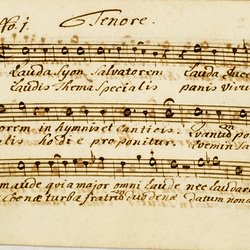 No. 1. Tenore.
Lauda Syon Salvatorem Lauda
Laudis Thema Specialis panis
orem in hymnis et canticis. quantu po
alis hodie proponitur.
aude quia major omni laude nec laudare
turba fratrum duodenae datum non a